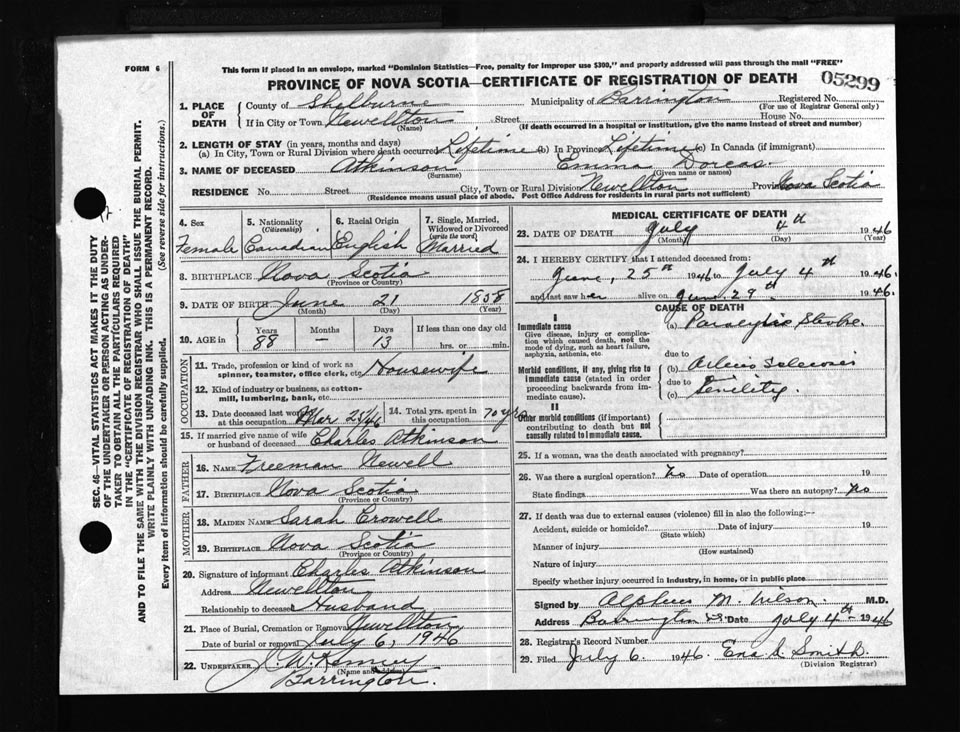 FORM 6
This form if placed in an envelope, marked "Dominion Statistics—Free, penalty for improper use $300," and properly addressed will pass through the mail "FREE"
PROVINCE OF NOVA SCOTIA—CERTIFICATE OF REGISTRATION OF DEATH
05299
1. PLACE OF DEATH
County of Shelburne Municipality of Barrington Registered No.
(For use of Registrar General only)
If in City or Town Newellton Street House No.
(Name) (If death occurred in a hospital or institution, give the name instead of street and number)
2. LENGTH OF STAY (in years, months and days)
(a) In City, Town or Rural Division where death occurred Lifetime (b) In Province Lifetime (c) In Canada (if immigrant)
3. NAME OF DECEASED Atkinson Emma Dorcas
(Surname) (Given name or names)
RESIDENCE No. Street City, Town or Rural Division Newellton Province Nova Scotia
(Residence means usual place of abode. Post Office Address for residents in rural parts not sufficient)
4. Sex
Female
5. Nationality
(Citizenship)
Canadian
6. Racial Origin
English
7. Single, Married, Widowed or Divorced
(write the word)
Married
8. BIRTHPLACE Nova Scotia
(Province or Country)
9. DATE OF BIRTH June 21 1858
(Month) (Day) (Year)
10. AGE in
Years Months Days If less than one day old
88 — 13 hrs. or min.
OCCUPATION
11. Trade, profession or kind of work as spinner, teamster, office clerk, etc. Housewife
12. Kind of industry or business, as cotton-mill, lumbering, bank, etc.
13. Date deceased last worked at this occupation Mar 25/46
14. Total yrs. spent in this occupation 70 yrs
15. If married give name of wife or husband of deceased Charles Atkinson
FATHER
16. NAME Freeman Newell
17. BIRTHPLACE Nova Scotia
(Province or Country)
MOTHER
18. MAIDEN NAME Sarah Crowell
19. BIRTHPLACE Nova Scotia
(Province or Country)
20. Signature of informant Charles Atkinson
Address Newellton
Relationship to deceased Husband
21. Place of Burial, Cremation or Removal Newellton
Date of burial or removal July 6, 1946
22. UNDERTAKER J. W. Kenney
(Name and address)
Barrington.
MEDICAL CERTIFICATE OF DEATH
23. DATE OF DEATH July 4th 1946
(Month) (Day) (Year)
24. I HEREBY CERTIFY that I attended deceased from:
June, 25th 1946 to July 4th 1946.
and last saw her alive on June 29th 1946.
CAUSE OF DEATH
I
Immediate cause
Give disease, injury or complication which caused death, not the mode of dying, such as heart failure, asphyxia, asthenia, etc
(a) Paralytic Stroke.
due to
Morbid conditions, if any, giving rise to immediate cause (stated in order proceeding backwards from immediate cause).
(b) Arterio Sclerosis
due to
(c) Senility.
II
Other morbid conditions (if important) contributing to death but not causally related to immediate cause.
25. If a woman, was the death associated with pregnancy?
26. Was there a surgical operation? No Date of operation 19
State findings Was there an autopsy? No
27. If death was due to external causes (violence) fill in also the following:—
Accident, suicide or homicide? Date of injury 19
(State which)
Manner of injury
(How sustained)
Nature of injury
Specify whether injury occurred in industry, in home, or in public place
Signed by Alpheus M. Wilson. M.D.
Address Barrington N.S. Date July 4th 1946
28. Registrar's Record Number
29. Filed July 6 1946. Ena S. Smith.
(Division Registrar)
SEC. 46—VITAL STATISTICS ACT MAKES IT THE DUTY
OF THE UNDERTAKER OR PERSON ACTING AS UNDER-
TAKER TO OBTAIN ALL THE PARTICULARS REQUIRED
IN THE "CERTIFICATE OF REGISTRATION OF DEATH"
AND TO FILE THE SAME WITH THE DIVISION REGISTRAR WHO SHALL ISSUE THE BURIAL PERMIT.
WRITE PLAINLY WITH UNFADING INK. THIS IS A PERMANENT RECORD.
Every item of information should be carefully supplied. (See reverse side for instructions.)